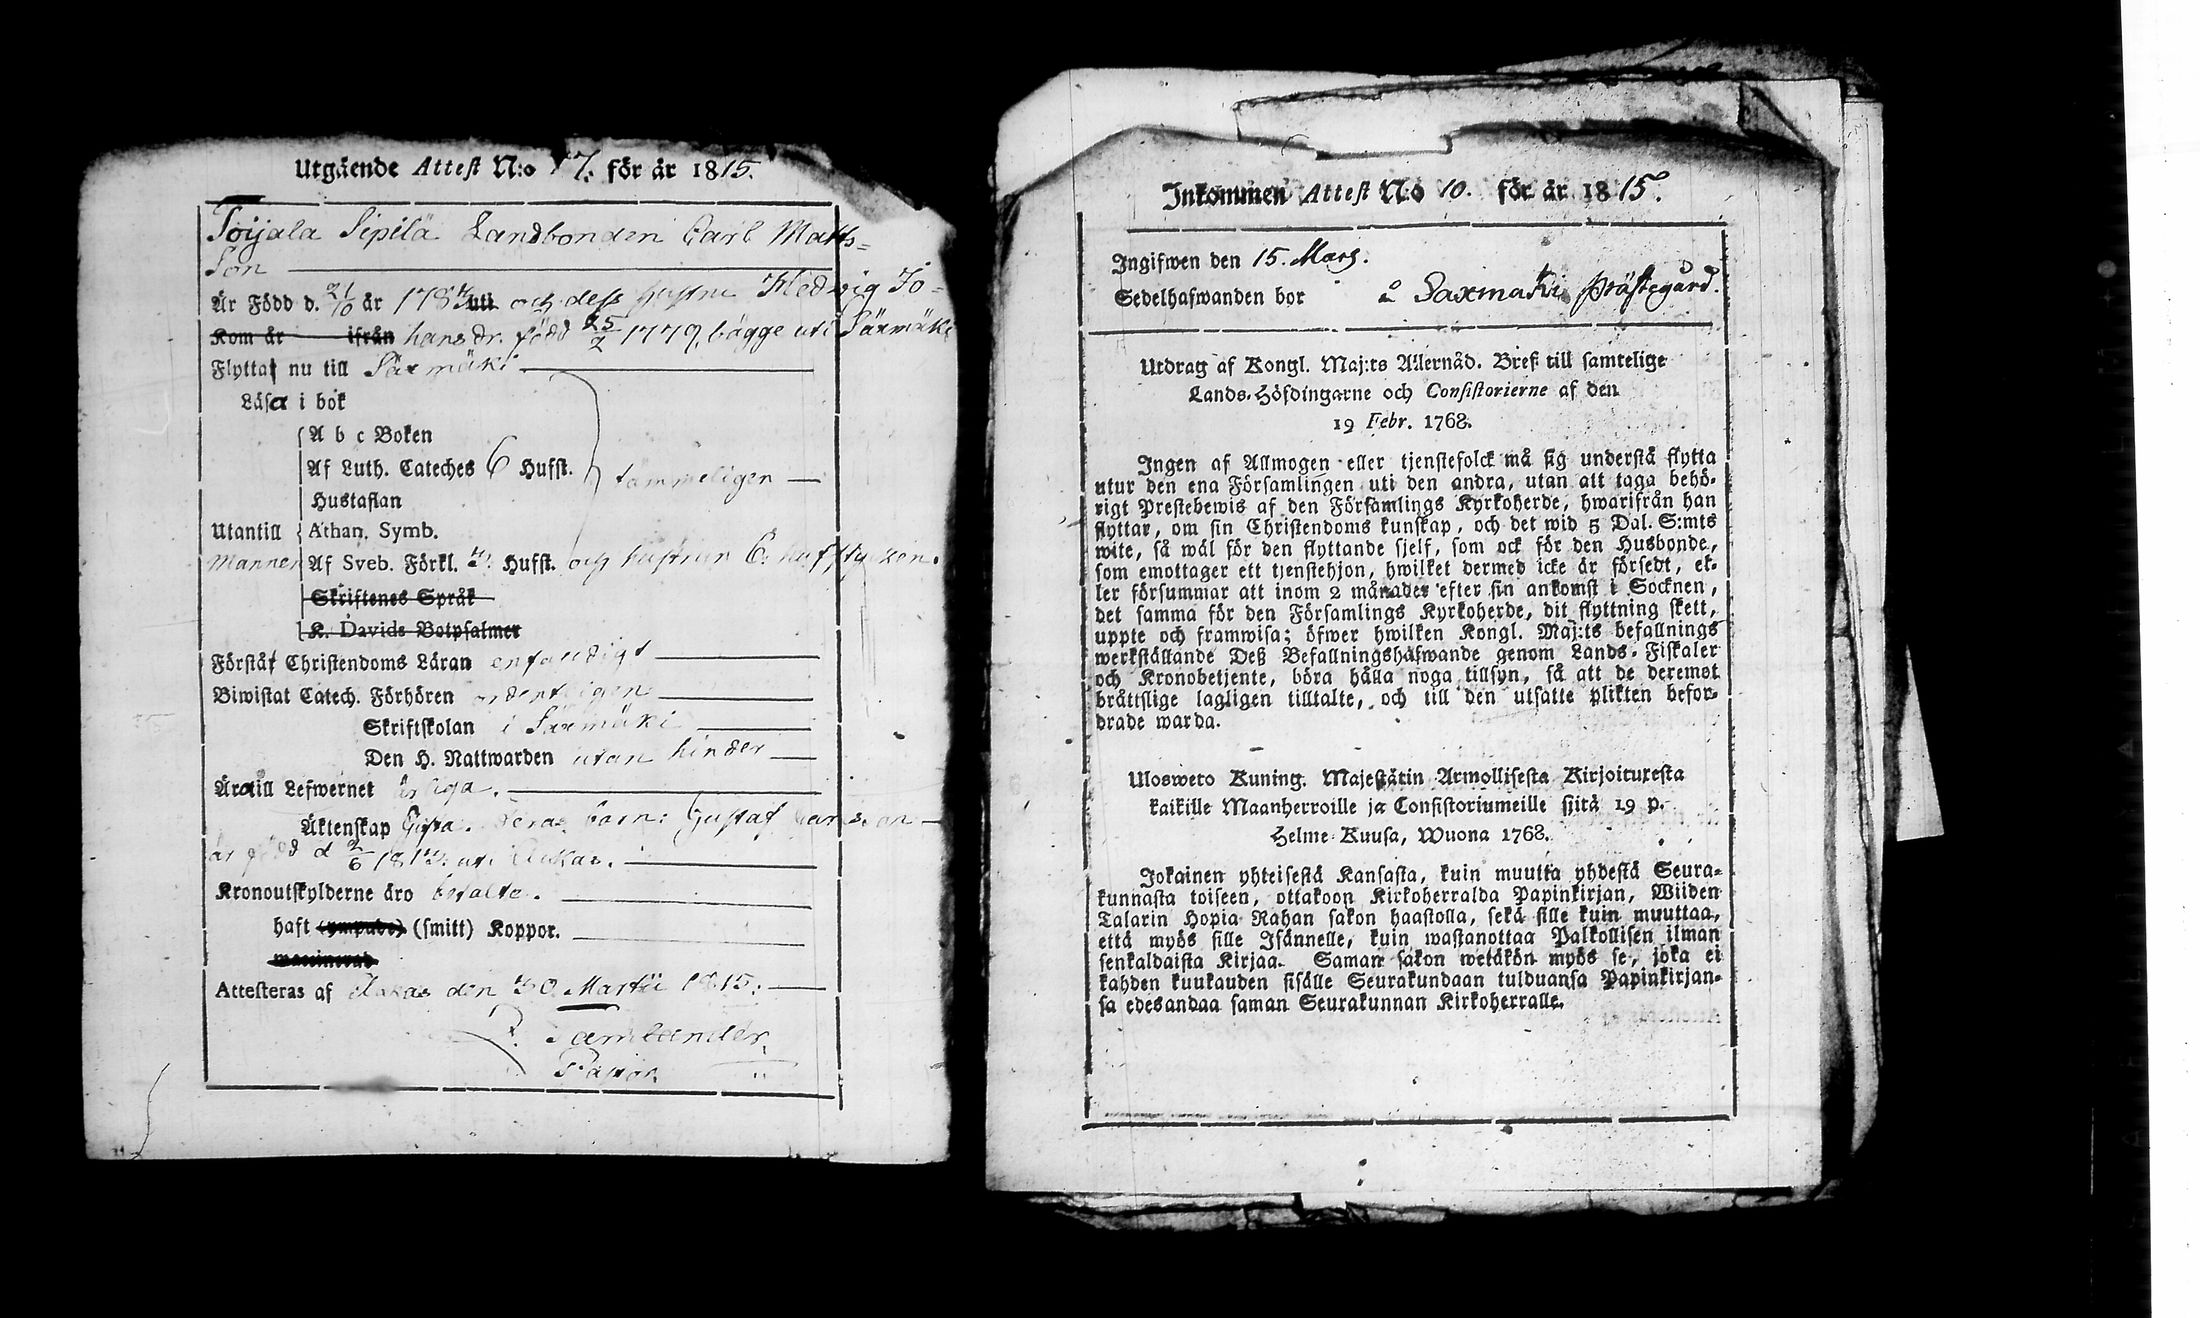 Utgående Attest N:o 17. för år 1815.
Toijala Sipilä Landbonden Carl Matts=
Son
Är Född d. 21/10 år 1784 uti och dess hustru Hedwig Jo=
Kom år ifrån hans dr. född 25/2 1779, bägge uti Säxmäki
Flyttat nu till Säxmäki
Läsa i bok
A b c Boken
Af Luth. Cateches 6 Hufst.
tämmeligen
Hustaflan
Utantill Athan. Symb.
Mannen Af Sveb. Förkl. Hufst. och hustrun 6. hufstycken.
Skriftenes Språk
K. Davids Botpsalmer
Förstår Christendoms Läran enfaldigt
Biwistat Catech. Förhören ordenteligen
Skriftskolan i Säxmäki
Den H. Nattwarden utan hinder
Äro till Lefwernet ärliga.
Äktenskap Gifta. deras barn: Gustaf
är född d 2/6 uti Ackas.
Kronoutskylderne äro betalte.
haft (ympade) (smitt) Koppor.
vaccinerad
Attesteras af Ackas den 30 Martii 1815.
Pastor.
Inkommen Attest N:o 10. för år 1815.
Ingifwen den 15. Mars.
Sedelhafwanden bor å Saxmaki Prästegård.
Utdrag af Kongl. Maj:ts Allernåd. Bref till samtelige
Lands-Höfdingarne och Consistorierne af den
19 Febr. 1768.
Ingen af Allmogen eller tjenstefolck må sig understå flytta
utur den ena Församlingen uti den andra, utan att taga behö-
rigt Prestebewis af den Församlings Kyrkoherde, hwarifrån han
flyttar, om sin Christendoms kunskap, och det wid 5 Dal. S:mts
wite, så wäl för den flyttande sjelf, som ock för den Husbonde,
som emottager ett tjenstehjon, hwilket dermed icke är försedt, el-
ler försummar att inom 2 månader efter sin ankomst i Socknen,
det samma för den Församlings Kyrkoherde, dit flyttning skett,
uppte och framwisa; öfwer hwilken Kongl. Maj:ts befallnings
werkställande Deß Befallningshafwande genom Lands-Fiskaler
och Kronobetjente, böra hålla noga tillsyn, så att de deremot
bråttslige lagligen tilltalte, och till den utsatte plikten befor-
drade warda.
Ulosweto Kuning. Majestätin Armollisesta Kirjoituxesta
kaikille Maanherroille ja Consistoriumeille siitä 19 p.
Helme-Kuusa, Wuona 1768.
Jokainen yhteisestä Kansasta, kuin muutta yhdestä Seura-
kunnasta toiseen, ottakoon Kirkoherralda Papinkirjan, Wiiden
Talarin Hopia Rahan sakon haastolla, sekä sille kuin muuttaa,
että myös sille Isännelle, kuin wastanottaa Palkollisen ilman
senkaldaista Kirjaa. Saman sakon wetäkön myös se, joka ei
kahden kuukauden sisälle Seurakundaan tulduansa Papinkirjan-
sa edesandaa saman Seurakunnan Kirkoherralle.